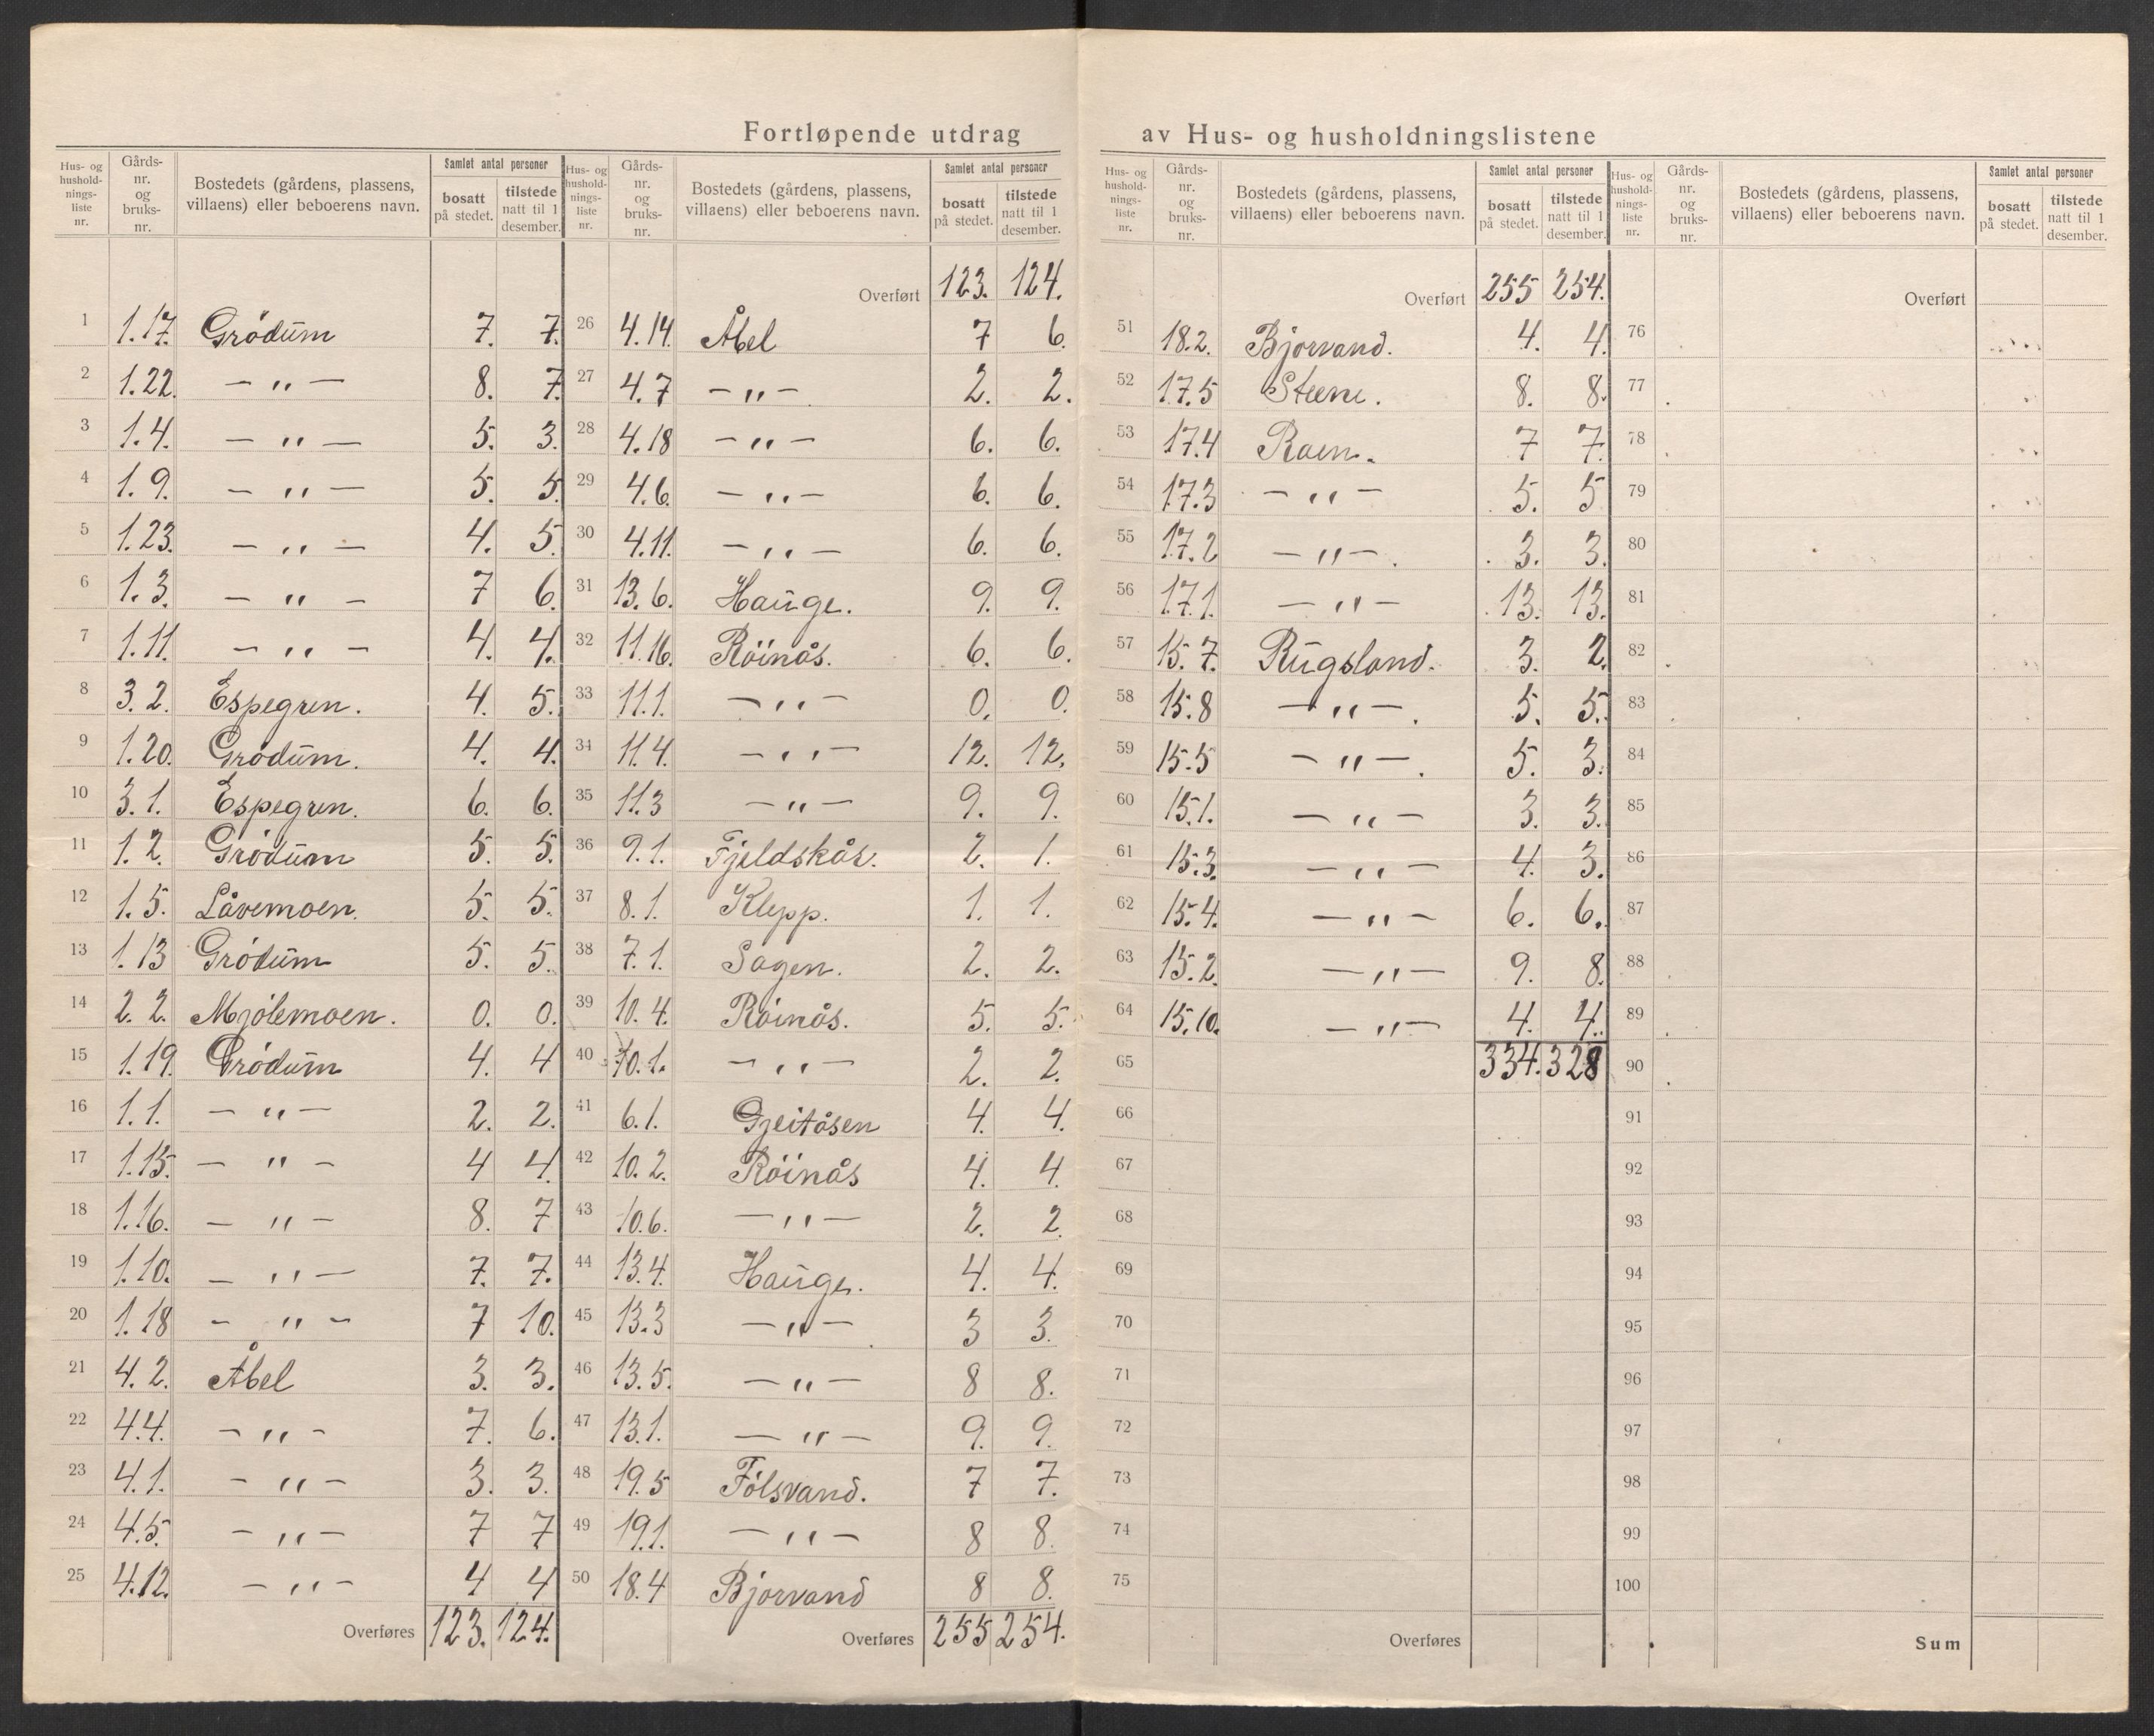 Fortløpende utdrag av Hus- og husholdningslistene
Hus- og husholdnings-liste nr. | Gårds-nr. og bruks-nr. | Bostedets (gårdens, plassens, villaens) eller beboerens navn. | Samlet antal personer | bosatt på stedet. | tilstede natt til 1 desember.
1 1.17. Grödum 7. 7.
2 1.22. — " — 8. 7.
3 1.4. — " — 5. 3.
4 1.9. — " — 5. 5.
5 1.23. — " — 4. 5.
6 1.3. — " — 7 6.
7 1.11. — " — 4. 4.
8 3.2. Espegren. 4. 5.
9 1.20. Grödum. 4. 4.
10 3.1. Espegren. 6. 6.
11 1.2. Grödum 5. 5.
12 1.5. Låvemoen. 5. 5.
13 1.13 Grödum 5. 5.
14 2.2. Mjölemoen. 0. 0.
15 1.19. Grödum 4. 4
16 1.1. — " — 2. 2.
17 1.15. — " — 4 4.
18 1.16. — " — 8. 7
19 1.10. — " — 7. 7.
20 1.18 — " — 7 10.
21 4.2. Åbel 3. 3.
22 4.4. — " — 7. 6.
23 4.1. — " — 3. 3.
24 4.5. — " — 7 7
25 4.12. — " — 4 4
Overføres 123. 124.
Hus- og husholdnings-liste nr. | Gårds-nr. og bruks-nr. | Bostedets (gårdens, plassens, villaens) eller beboerens navn. | Samlet antal personer | bosatt på stedet. | tilstede natt til 1 desember.
Overført 123. 124.
26 4.14. Åbel 7 6.
27 4.7 — " — 2. 2.
28 4.18 — " — 6. 6.
29 4.6. — " — 6. 6.
30 4.11. — " — 6. 6.
31 13.6. Hauge. 9. 9.
32 11.16. Röinås. 6. 6.
33 11.1. — " — 0. 0.
34 11.4. — " — 12. 12.
35 11.3 — " — 9. 9.
36 9.1. Fjeldskås. 2. 1.
37 8.1. Klepp. 1. 1.
38 7.1. Sagen. 2. 2.
39 10.4. Röinås. 5. 5.
40 10.1. — " — 2. 2.
41 6.1. Gjeitåsen 4. 4.
42 10.2. Röinås 4. 4.
43 10.6. — " — 2. 2.
44 13.4. Hauge. 4. 4.
45 13.3 — " — 3 3.
46 13.5. — " — 8 8.
47 13.1. — " — 9. 9.
48 19.5 Fölsvand. 7 7.
49 19.1. — " — 8 8.
50 18.4 Bjorvand 8 8.
Overføres 255 254.
Hus- og husholdnings-liste nr. | Gårds-nr. og bruks-nr. | Bostedets (gårdens, plassens, villaens) eller beboerens navn. | Samlet antal personer | bosatt på stedet. | tilstede natt til 1 desember.
Overført 255 254.
51 18.2. Bjorvand. 4. 4.
52 17.5 Steene. 8. 8.
53 17.4 Raen. 7 7.
54 17.3 — " — 5. 5
55 17.2 — " — 3. 3.
56 17.1. — " — 13. 13.
57 15.7. Rugsland. 3. 2.
58 15.8 — " — 5. 5.
59 15.5 — " — 5. 3.
60 15.1. — " — 3. 3.
61 15.3. — " — 4. 3.
62 15.4. — " — 6. 6.
63 15.2. — " — 9. 8.
64 15.10. — " — 4. 4.
65 334. 328
66
67
68
69
70
71
72
73
74
75
Overføres
Hus- og husholdnings-liste nr. | Gårds-nr. og bruks-nr. | Bostedets (gårdens, plassens, villaens) eller beboerens navn. | Samlet antal personer | bosatt på stedet. | tilstede natt til 1 desember.
Overført
76
77
78
79
80
81
82
83
84
85
86
87
88
89
90
91
92
93
94
95
96
97
98
99
100
Sum